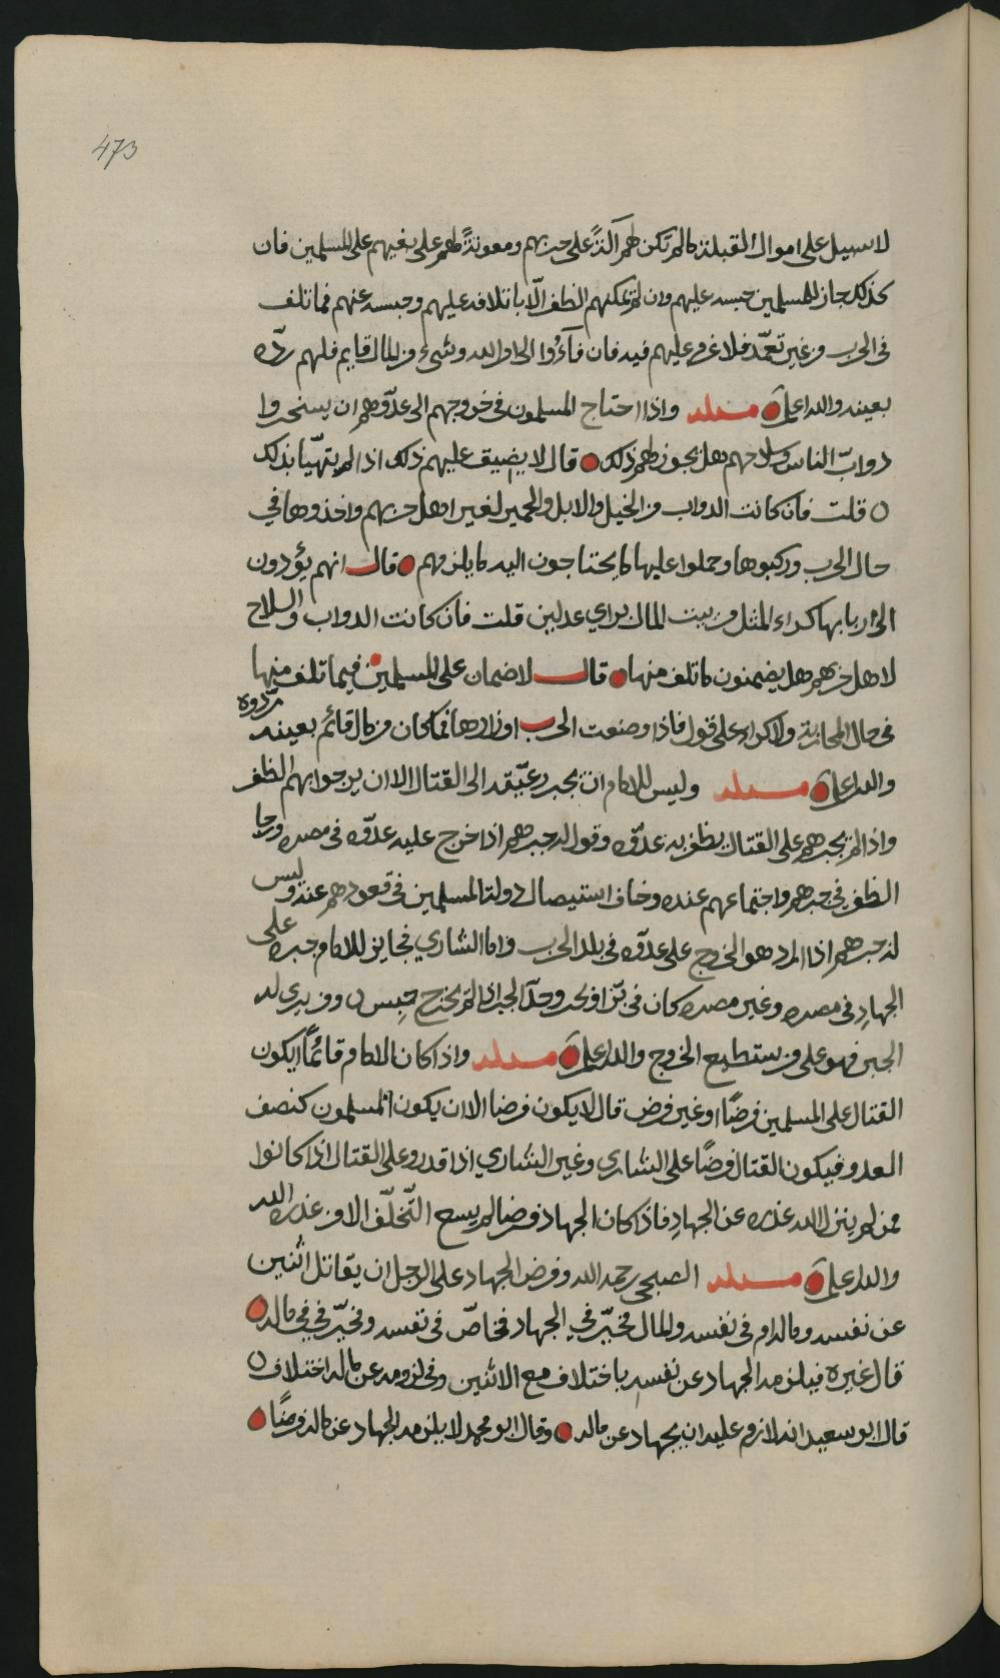 473
لا سبيل على اموال اهل القبلة ما لم تكن لهم آلةً على حربهم ومعونةً لهم على بغيهم على المسلمين فان
كذلك جاز للمسلمين حبسه عليهم وان لم يمكنهم الظفر الّا باتلافه عليهم وحبسه عنهم فما تلف
فى الحرب من غير تعمّد فلا غرم عليهم فيه فان فآءُوا الى امر الله وشىء من المال قايم فلهم ردّه
بعينه والله اعلم مسئلة واذا احتاج المسلمون فى خروجهم الى عدوّهم ان يسخروا
دوابّ الناس وسلاحهم هل يجوز لهم ذلك قال لا يضيق عليهم ذلك اذا لم يتهيّا بذلك
ه قلت فان كانت الدواب من الخيل والابل والحمير لغير اهل حربهم واخذوها في
حال الحرب وركبوها وحملوا عليها ما يحتاجون اليه ما يلزمهم قال انهم يؤدون
الى اربابها كراء المثل من بيت المال براي عدلين قلت فان كانت الدواب والسلاح
لاهل حربهم هل يضمنون ما تلف منها قال لا ضمان على المسلمين فيما تلف منها
فى حال المحاربة ولا كراء على قول فاذا وضعت الحرب اوزارها فما كان من مال قائم بعينه ردوه
والله اعلم مسئلة وليس للامام ان يجبر رعيّته الى القتال الا ان يرجوا بهم الظفر
واذا لم يجبرهم على القتال يظفر به عدوّه وقول له جبرهم اذا خرج عليه عدوّه فى مصره ورجا
الظفر في جبرهم واجتماعهم عنده وخاف استيصال دولة المسلمين فى قعودهم عنه وليس
له جبرهم اذا اراد هو الخروج على عدوّه فى بلد الحرب واما الشاري فجايز للامام جبره على
الجهاد فى مصره وغير مصره كان في برّ او بحر وحدّ الجبر اذا لم يخرج حبس ه ومن يرى له
الجبر فهو على من يستطيع الخروج والله اعلم مسئلة واذا كان الامام قائماً ايكون
القتال على المسلمين فرضًا او غير فرض قال لا يكون فرضا الا ان يكون المسلمون كنصف
العدو فيكون القتال فرضًا على الشاري وغير الشاري اذا قدروا على القتال اذا كانوا
ممن لم ينزل الله عذره عن الجهاد فاذا كان الجهاد فرضا لم يسع التّخلّف الا من عذره الله
والله اعلم مسئلة الصبحي رحمه الله وفرض الجهاد على الرجل ان يقاتل اثنين
عن نفسه وماله ام فى نفسه والمال مخيّر في الجهاد فخاصّ فى نفسه ومخيّر في ماله
قال غيره فيلزمه الجهاد عن نفسه باختلاف مع الاثنين وفى لزومه عن ماله اختلاف ه
قال ابو سعيد انه لازم عليه ان يجهاد عن ماله وقال ابو محمد لا يلزمه الجهاد عن ماله فرضًا